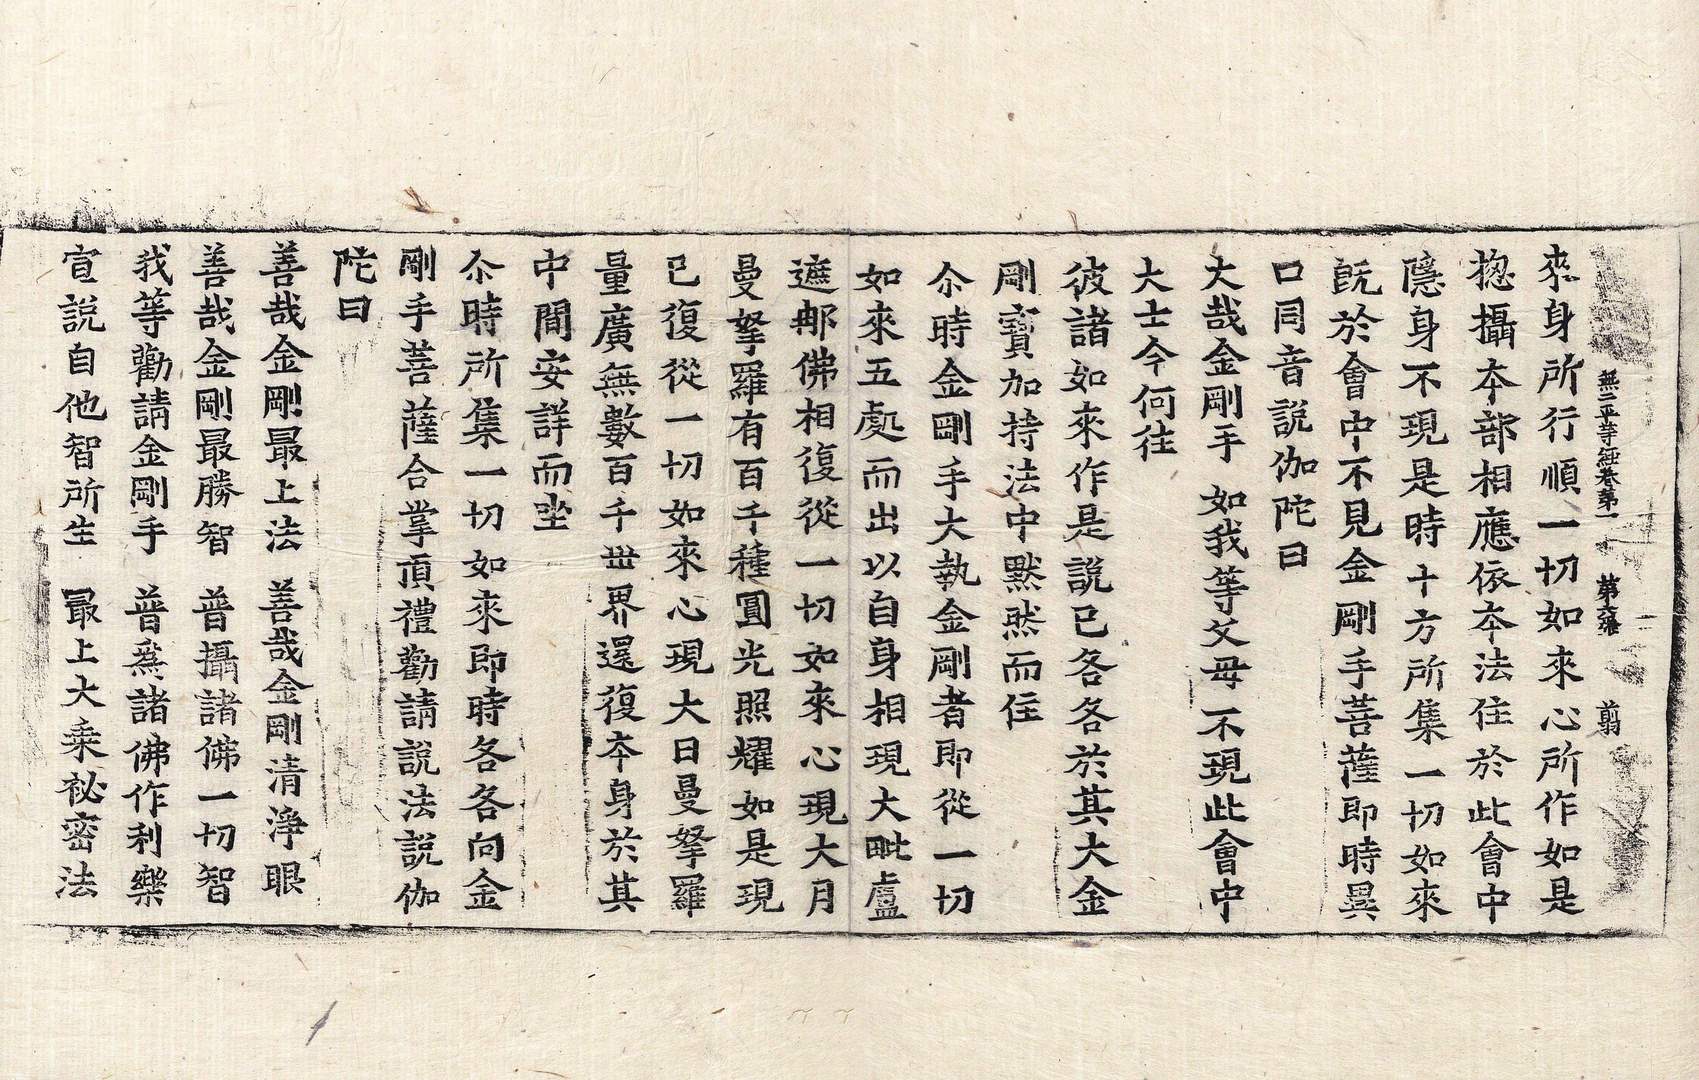 無二平等經卷第一 第六張 翦
來身所行順一切如來心所作如是
揔攝本部相應依本法住於此會中
隱身不現是時十方所集一切如來
旣於會中不見金剛手菩薩卽時異
口同音說伽陀曰
大哉金剛手 如我等父母 不現此會中
大士今何往
彼諸如來作是說已各各於其大金
剛寶加持法中默然而住
尒時金剛手大執金剛者卽從一切
如來五處而出以自身相現大毗盧
遮那佛相復從一切如來心現大月
曼拏羅有百千種圓光照耀如是現
已復從一切如來心現大日曼拏羅
量廣無數百千世界還復本身於其
中間安詳而坐
尒時所集一切如來卽時各各向金
剛手菩薩合掌頂禮勸請說法說伽
陀曰
善哉金剛最上法 善哉金剛清淨眼
善哉金剛最勝智 普攝諸佛一切智
我等勸請金剛手 普爲諸佛作利樂
宣說自他智所生 最上大乘祕密法